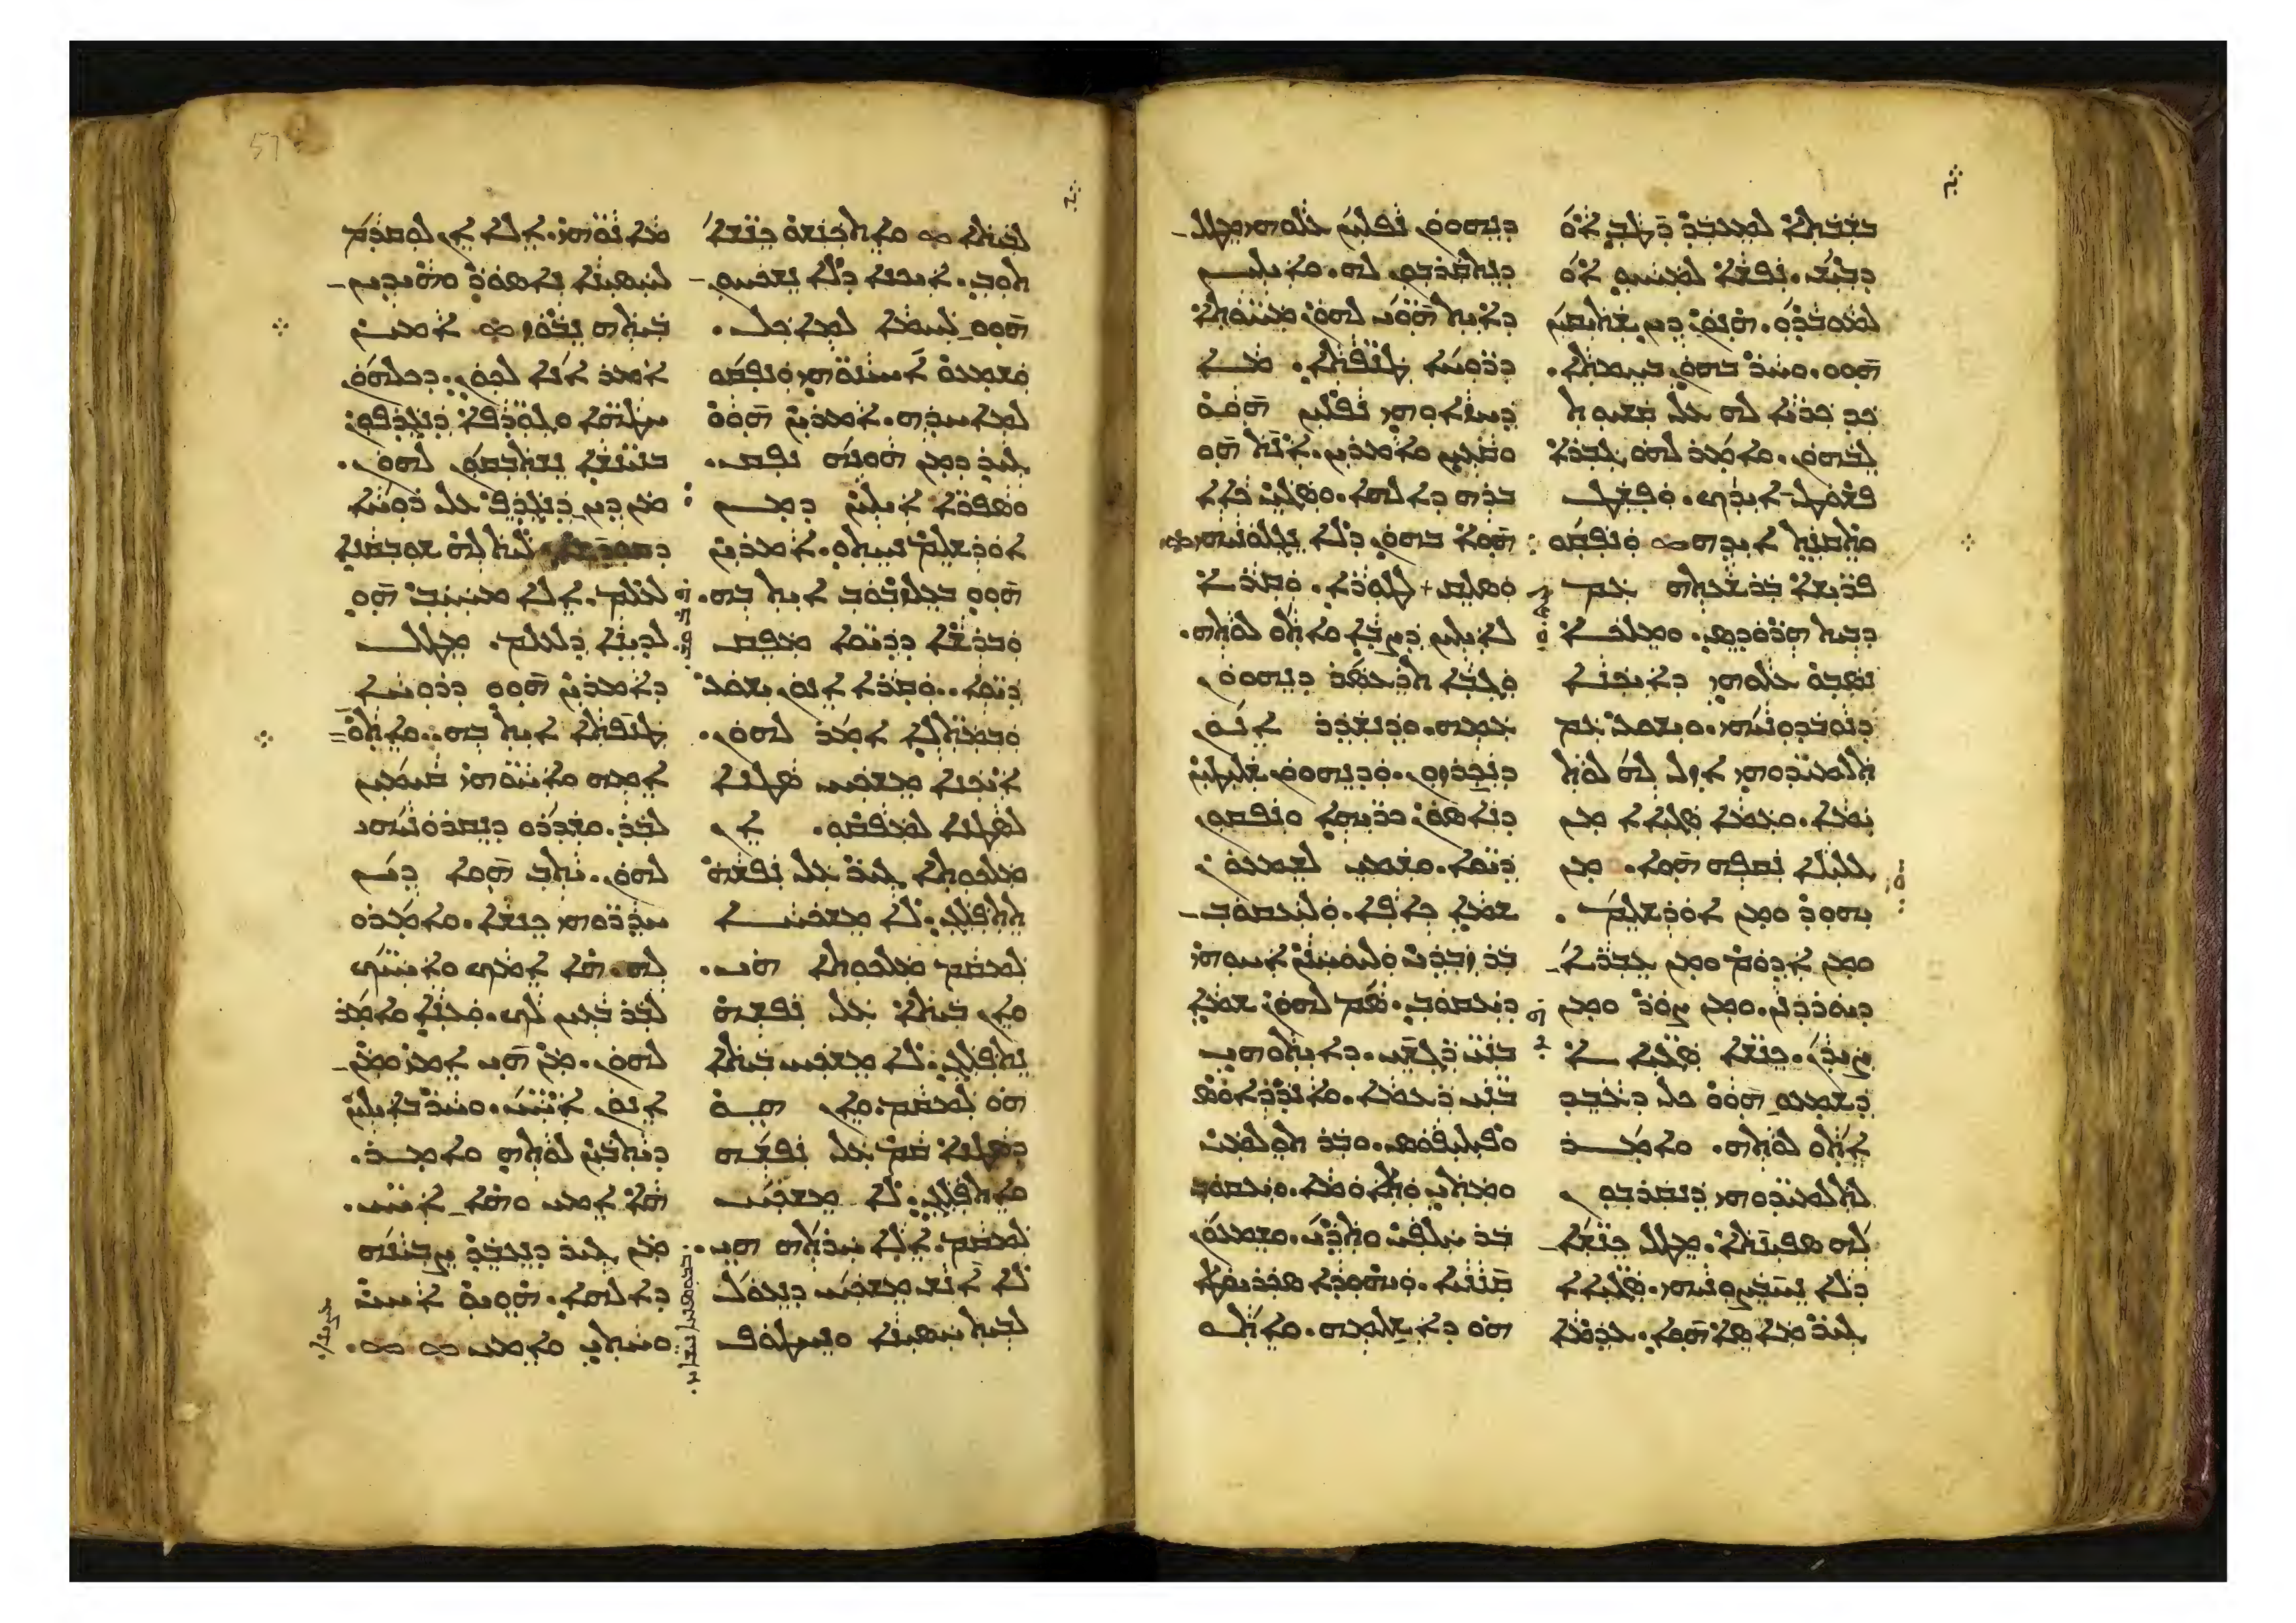 ܒܫܒܬܐ ܠܡܥܒܕ ܕܛܒ ܐܘ
ܕܒܝܫ. ܢܦܫܐ ܠܡܚܝܘ ܐܘ
ܠܡܘܒܕܘ. ܗܢܘܢ ܕܝܢ ܫܬܝܩܝܢ
ܗܘܘ. ܘܚܪ ܒܗܘܢ ܒܚܡܬܐ.
ܟܕ ܟܪܝܐ ܠܗ ܥܠ ܩܫܝܘܬ
ܠܒܗܘܢ. ܘܐܡܪ ܠܗܘ ܓܒܪܐ
ܦܫܘܛ ܐܝܕܟ. ܘܦܫܛ
ܘܬܩܢܬ ܐܝܕܗ ܘܢܦܩܘ
ܦܪܝܫܐ ܒܪܫܥܬܗ ܥܡ
ܕܒܝܬ ܗܪܘܕܣ. ܘܡܠܟܐ
ܢܣܒܘ ܥܠܘܗܝ ܕܐܝܟܢܐ
ܢܘܒܕܘܢܝܗܝ. ܘܝܫܘܥ ܥܡ
ܬܠܡܝܕܘܗܝ ܐܙܠ ܠܗ ܠܘܬ
ܝܡܐ. ܘܥܡܐ ܣܓܝܐܐ ܡܢ
ܓܠܝܠܐ ܢܩܦܗ ܗܘܐ. ܘܡܢ
ܝܗܘܕ ܘܡܢ ܐܘܪܫܠܡ.
ܘܡܢ ܐܕܘܡ ܘܡܢ ܥܒܪܐ
ܕܝܘܪܕܢܢ. ܘܡܢ ܨܘܪ ܘܡܢ
ܨܝܕܢ. ܟܢܫܐ ܣܓܝܐܐ
ܕܫܡܥܘ ܗܘܘ ܟܠ ܕܥܒܕ
ܐܬܘ ܠܘܬܗ. ܘܐܡܪ
ܠܬܠܡܝܕܘܗܝ ܕܢܩܪܒܘܢ
ܠܗ ܣܦܝܢܬܐ. ܡܛܠ ܟܢܫܐ
ܕܠܐ ܢܚܒܨܘܢܝܗܝ. ܣܓܝܐܐ
ܓܝܪ ܡܐܣܐ ܗܘܐ. ܥܕܡܐ
ܕܢܗܘܘܢ ܢܦܠܝܢ ܥܠܘܗܝ ܡܛܠ
ܕܢܬܩܪܒܘܢ ܠܗ. ܘܐܝܠܝܢ
ܕܐܝܬ ܗܘܝ ܠܗܘܢ ܡܚܘܬܐ
ܕܪܘܚܐ ܛܢܦܬܐ. ܡܐ
ܕܚܙܐܘܗܝ ܢܦܠܝܢ ܗܘܘ
ܘܩܥܝܢ ܘܐܡܪܝܢ. ܐܢܬ ܗܘ
ܒܪܗ ܕܐܠܗܐ. ܘܣܓܝ ܟܐܐ
ܗܘܐ ܒܗܘܢ ܕܠܐ ܢܓܠܘܢܝܗܝ
ܘܣܠܩ ܠܛܘܪܐ. ܘܩܪܐ
ܠܐܝܠܝܢ ܕܨܒܐ ܘܐܬܘ ܠܘܬܗ.
ܘܓܒܐ ܬܪܥܣܪ ܕܢܗܘܘܢ
ܥܡܗ. ܘܕܢܫܕܪ ܐܢܘܢ
ܕܢܟܪܙܘܢ. ܘܕܢܗܘܘܢ ܫܠܝܛܝܢ
ܕܢܐܣܘܢ ܟܪܝܗܐ ܘܢܦܩܘܢ
ܕܝܘܐ. ܘܫܡܝ ܠܫܡܥܘܢ
ܫܡܐ ܟܐܦܐ. ܘܠܝܥܩܘܒ
ܒܪ ܙܒܕܝ ܘܠܝܘܚܢܢ ܐܚܘܗܝ
ܕܝܥܩܘܒ. ܣܡ ܠܗܘܢ ܫܡܐ
ܒܢܝ ܪܓܫܝ. ܕܐܝܬܘܗܝ
ܒܢܝ ܪܥܡܐ. ܘܐܢܕܪܐܘܣ
ܘܦܝܠܝܦܘܣ. ܘܒܪ ܬܘܠܡܝ
ܘܡܬܝ ܘܬܐܘܡܐ. ܘܝܥܩܘܒ
ܒܪ ܚܠܦܝ ܘܬܕܝ. ܘܫܡܥܘܢ
ܩܢܢܝܐ. ܘܝܗܘܕܐ ܣܟܪܝܘܛܐ
ܗܘ ܕܐܫܠܡܗ. ܘܐܬܘ
ܠܒܝܬܐ ܘܐܬܟܢܫܘ ܟܢܫܐ
ܬܘܒ. ܐܝܟܢܐ ܕܠܐ ܢܫܟܚܘܢ
ܗܘܘ ܠܚܡܐ ܠܡܐܟܠ.
ܘܫܡܥܘ ܐܚܝܢܘܗܝ ܘܢܦܩܘ
ܠܡܐܚܕܗ. ܐܡܪܝܢ ܗܘܘ
ܓܝܪ ܕܡܢ ܗܘܢܗ ܢܦܩ.
ܘܣܦܪܐ ܐܝܠܝܢ ܕܡܢ
ܐܘܪܫܠܡ ܢܚܬܘ. ܐܡܪܝܢ
ܗܘܘ ܒܥܠܙܒܘܒ ܐܝܬ ܒܗ.
ܘܒܪܫܐ ܕܕܝܘܐ ܡܦܩ
ܕܝܘܐ. ܘܩܪܐ ܐܢܘܢ ܝܫܘܥ
ܘܒܡܬܠܐ ܐܡܪ ܠܗܘܢ.
ܐܝܟܢܐ ܡܫܟܚ ܣܛܢܐ
ܠܣܛܢܐ ܠܡܦܩܘ. ܐܢ
ܡܠܟܘܬܐ ܓܝܪ ܥܠ ܢܦܫܗ
ܬܬܦܠܓ. ܠܐ ܡܫܟܚܐ
ܠܡܩܡ ܡܠܟܘܬܐ ܗܝ.
ܘܐܢ ܒܝܬܐ ܥܠ ܢܦܫܗ
ܢܬܦܠܓ. ܠܐ ܡܫܟܚ ܒܝܬܐ
ܗܘ ܠܡܩܡ. ܘܐܢ ܗܘ
ܕܣܛܢܐ ܩܡ ܥܠ ܢܦܫܗ
ܘܐܬܦܠܓ. ܠܐ ܡܫܟܚ
ܠܡܩܡ. ܐܠܐ ܚܪܬܗ ܗܝ.
ܠܐ ܐܢܫ ܡܫܟܚ ܕܢܥܘܠ
ܠܒܝܬ ܚܣܝܢܐ ܘܢܚܛܘܦ
ܡܐܢܘܗܝ. ܐܠܐ ܐܢ ܠܘܩܕܡ
ܠܚܣܝܢܐ ܢܐܣܘܪ ܘܗܝܕܝܢ
ܒܝܬܗ ܢܒܘܙ ܐܡܝܢ
ܐܡܪ ܐܢܐ ܠܟܘܢ. ܕܟܠܗܘܢ
ܚܛܗܐ ܘܓܘܕܦܐ ܕܢܓܕܦܘܢ
ܒܢܝܢܫܐ ܢܫܬܒܩܘܢ ܠܗܘܢ.
ܡܢ ܕܝܢ ܕܢܓܕܦ ܥܠ ܪܘܚܐ
ܕܩܘܕܫܐ ܠܝܬ ܠܗ ܫܘܒܩܢܐ
ܠܥܠܡ. ܐܠܐ ܡܚܝܒ ܗܘ
ܠܕܝܢܐ ܕܠܥܠܡ. ܡܛܠ
ܕܐܡܪܝܢ ܗܘܘ ܕܪܘܚܐ
ܛܢܦܬܐ ܐܝܬ ܒܗ. ܘܐܬܘ
ܐܡܗ ܘܐܚܘܗܝ ܩܝܡܝܢ
ܠܒܪ. ܘܫܕܪܘ ܕܢܩܪܘܢܝܗܝ
ܠܗܘܢ. ܝܬܒ ܗܘܐ ܕܝܢ
ܚܕܪܘܗܝ ܟܢܫܐ. ܘܐܡܪܘ
ܠܗ ܗܐ ܐܡܟ ܘܐܚܝܟ
ܠܒܪ ܒܥܝܢ ܠܟ. ܘܥܢܐ ܘܐܡܪ
ܠܗܘܢ. ܡܢ ܗܝ ܐܡܝ ܘܡܢ
ܐܢܘܢ ܐܚܝ. ܘܚܪ ܒܐܝܠܝܢ
ܕܝܬܒܝܢ ܠܘܬܗ ܘܐܡܪ.
ܗܐ ܐܡܝ ܘܗܐ ܐܚܝ.
ܡܢ ܓܝܪ ܕܢܥܒܕ ܨܒܝܢܗ
ܕܐܠܗܐ. ܗܘܝܘ ܐܚܝ
ܘܚܬܝ ܘܐܡܝ